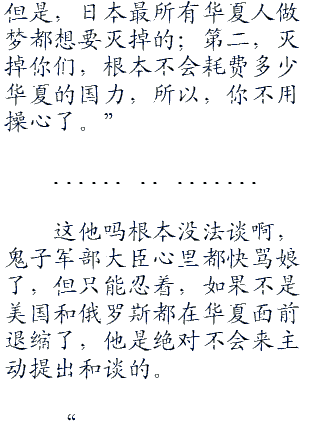 但是，日本最所有华夏人做
梦都想要灭掉的；第二，灭
掉你们，根本不会耗费多少
华夏的国力，所以，你不用
操心了。”
...... .. .......
这他吗根本没法谈啊，
鬼子军部大臣心里都快骂娘
了，但只能忍着，如果不是
美国和俄罗斯都在华夏面前
退缩了，他是绝对不会来主
动提出和谈的。
“